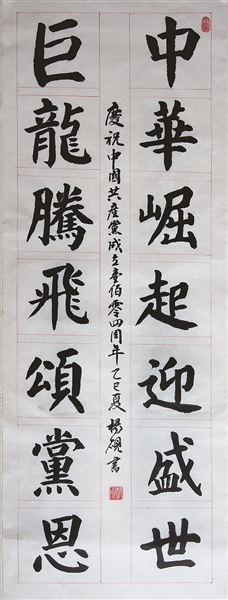 中華崛起迎盛世
慶祝中國共產黨成立壹佰零四周年乙巳夏楊硯書
巨龍騰飛頌黨恩